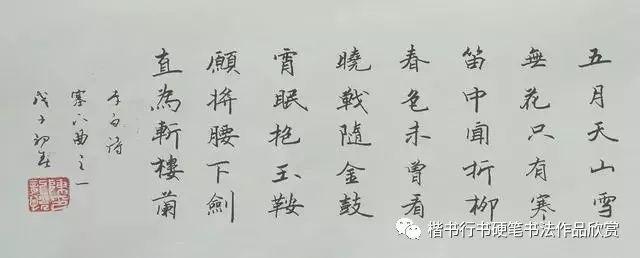 五月天山雪
無花只有寒
笛中聞折柳
春色未曾看
曉戰隨金鼓
宵眠抱玉鞍
願將腰下劍
直為斬樓蘭
李白詩
塞下曲之一
戊子初春
楷书行书硬笔书法作品欣赏